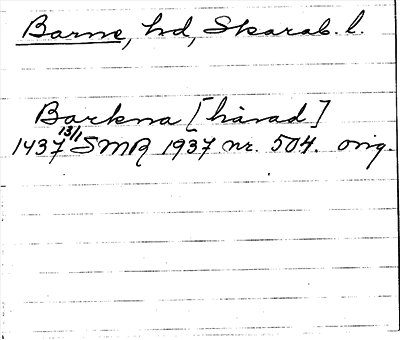 Barne, hd, Skarab. l.
Barkna [härad]
1437 13/1 SMR 1937 nr. 504. orig.